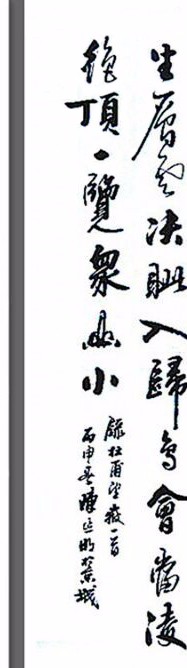 生層雲决眦入歸鳥會當凌
絶頂一覽衆山小
錄杜甫望嶽一首
丙申冬陳